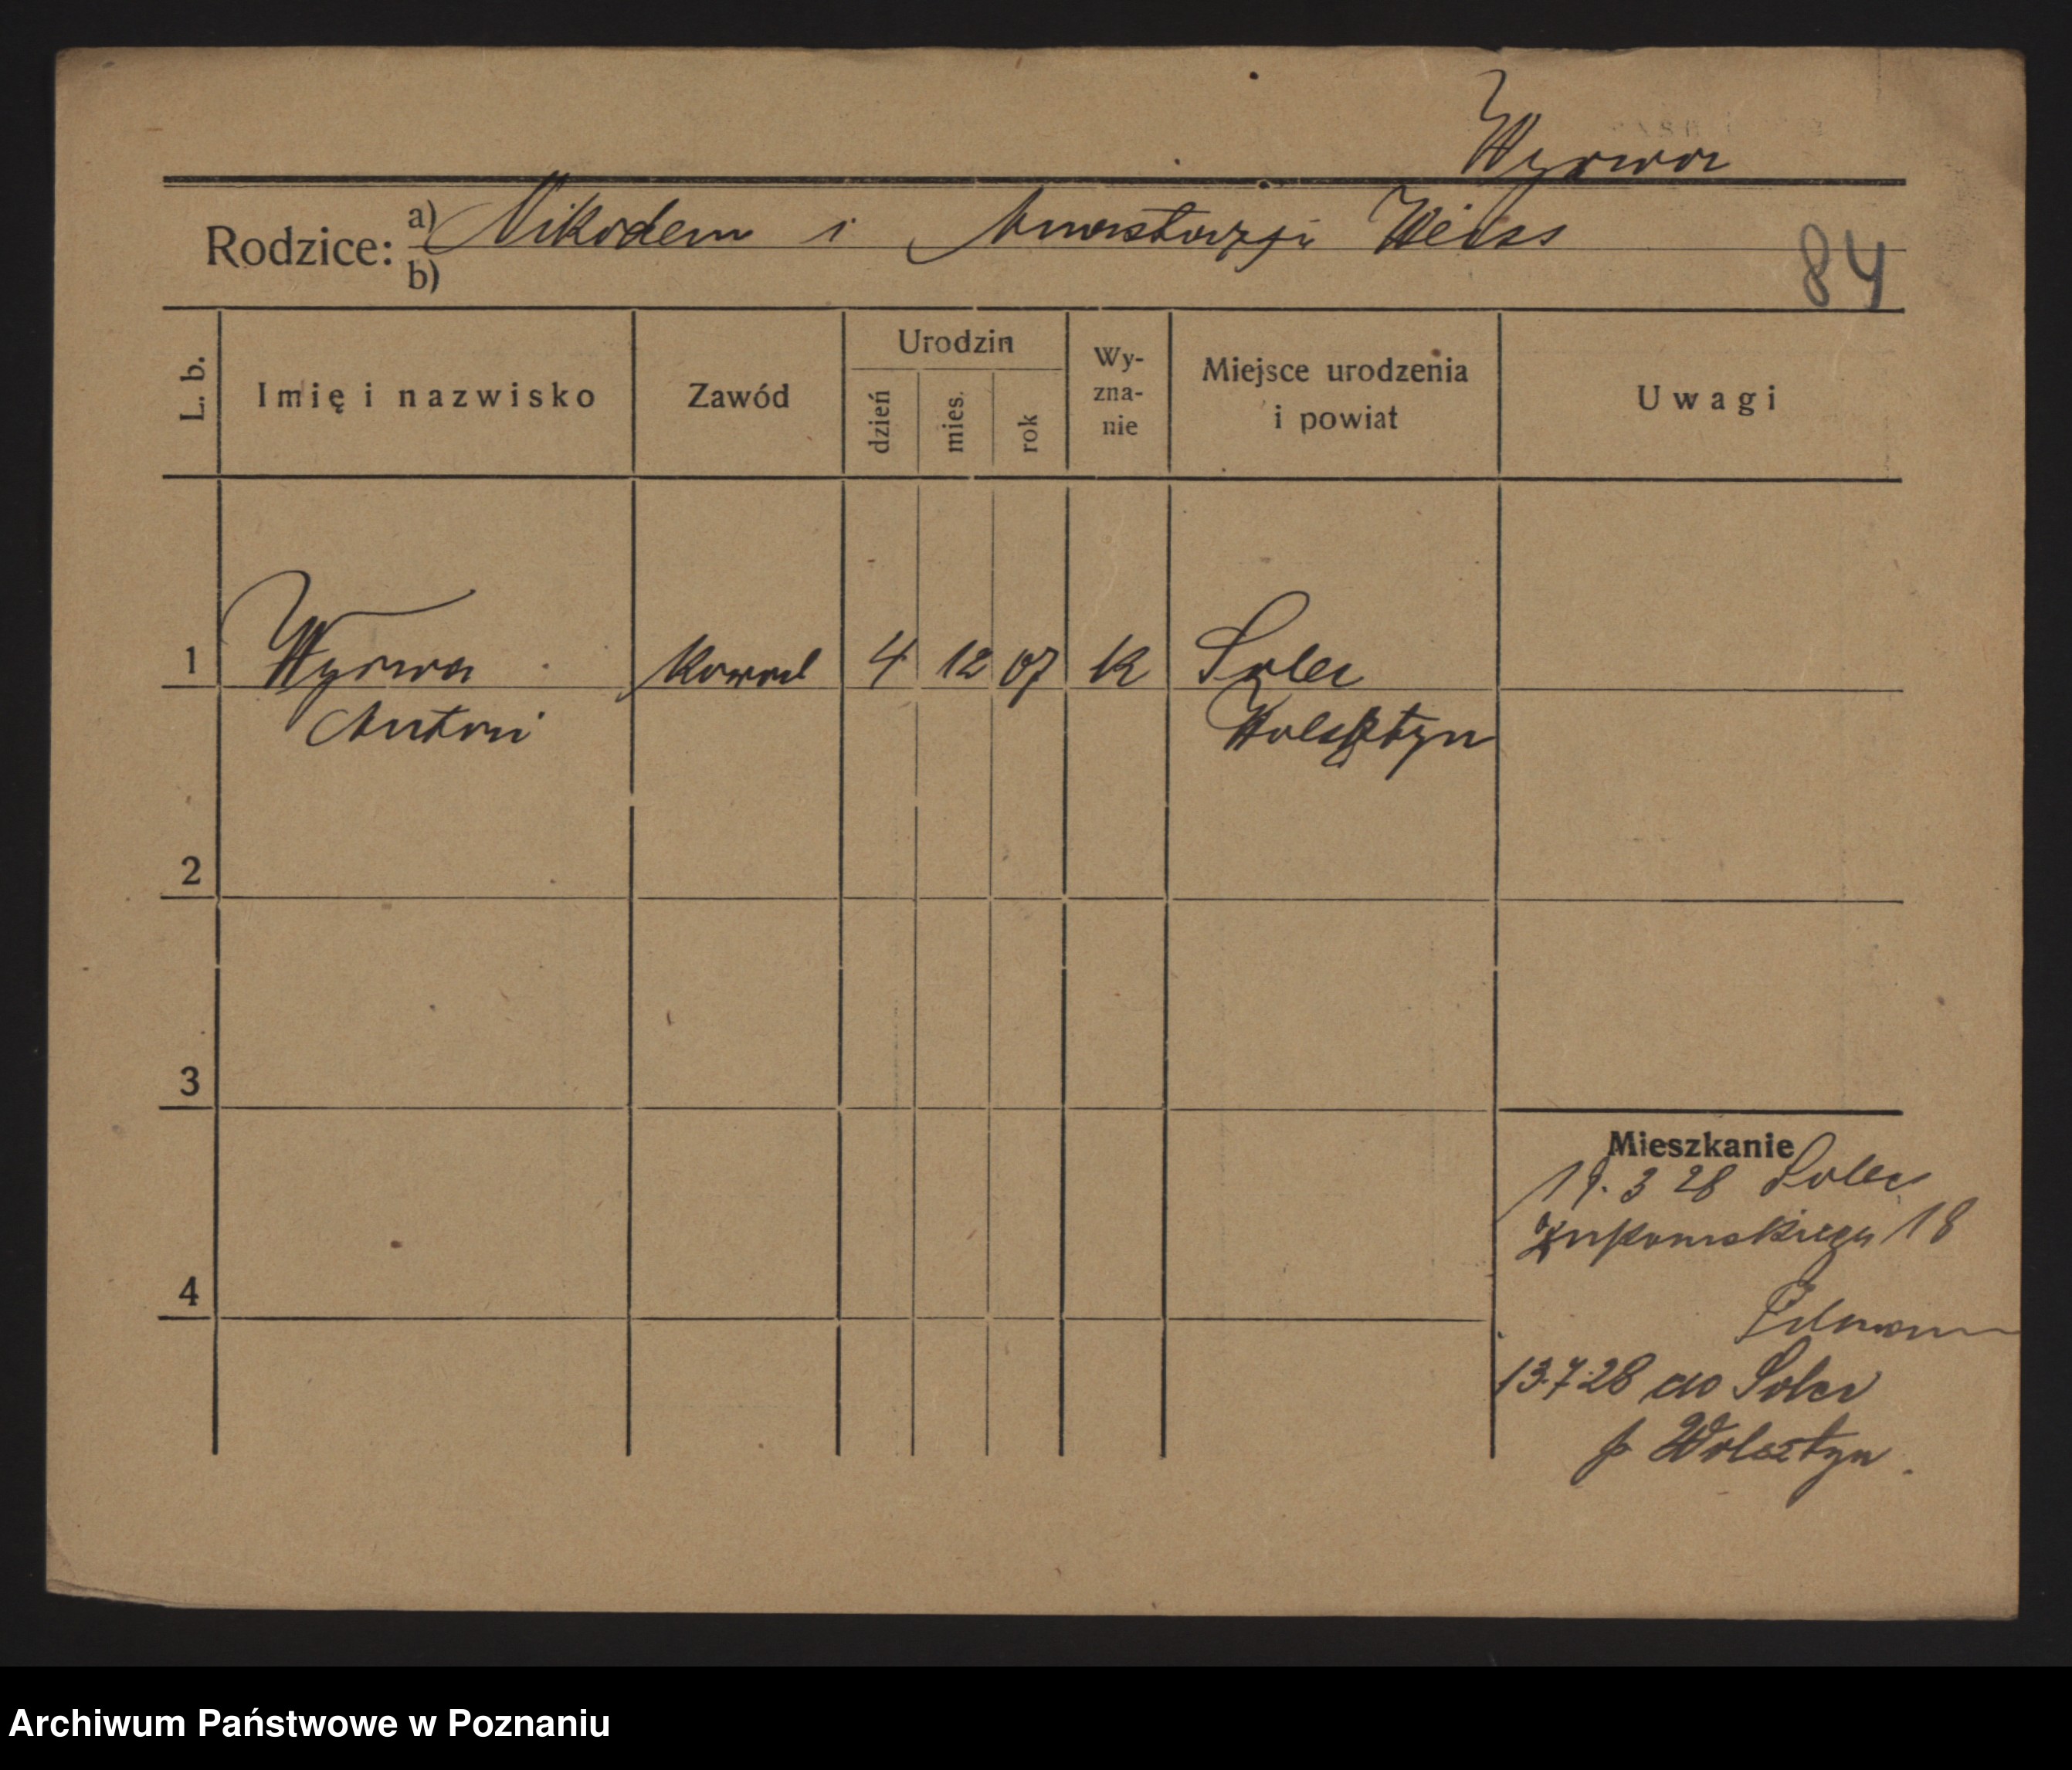 Wyrwa
Rodzice: a) Nikodem i Anastazja Weiss
b)
84
L. b. Imię i nazwisko Zawód Urodzin dzień mies. rok Wy-zna-nie Miejsce urodzenia i powiat Uwagi
1 Wyrwa Kowal 4 12 07 K Solec
Antoni Wolsztyn
2
3
Mieszkanie
19. 3 28 Solec
18
4
13.7.28 do Solec
p Wolsztyn.
Archiwum Państwowe w Poznaniu